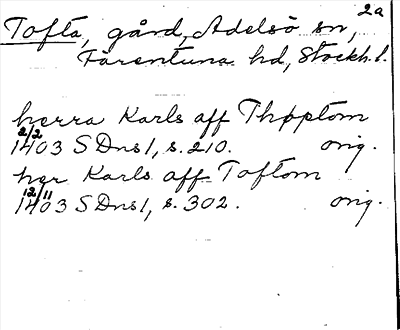 2a
Tofta, gård, Adelsö sn,
Färentuna hd, Stockh. l.
herra Karls aff Thøptom
2/2
1403 SDns 1, s. 210. orig.
her Karls aff Toftom
12/11
1403 SDns 1, s. 302. orig.